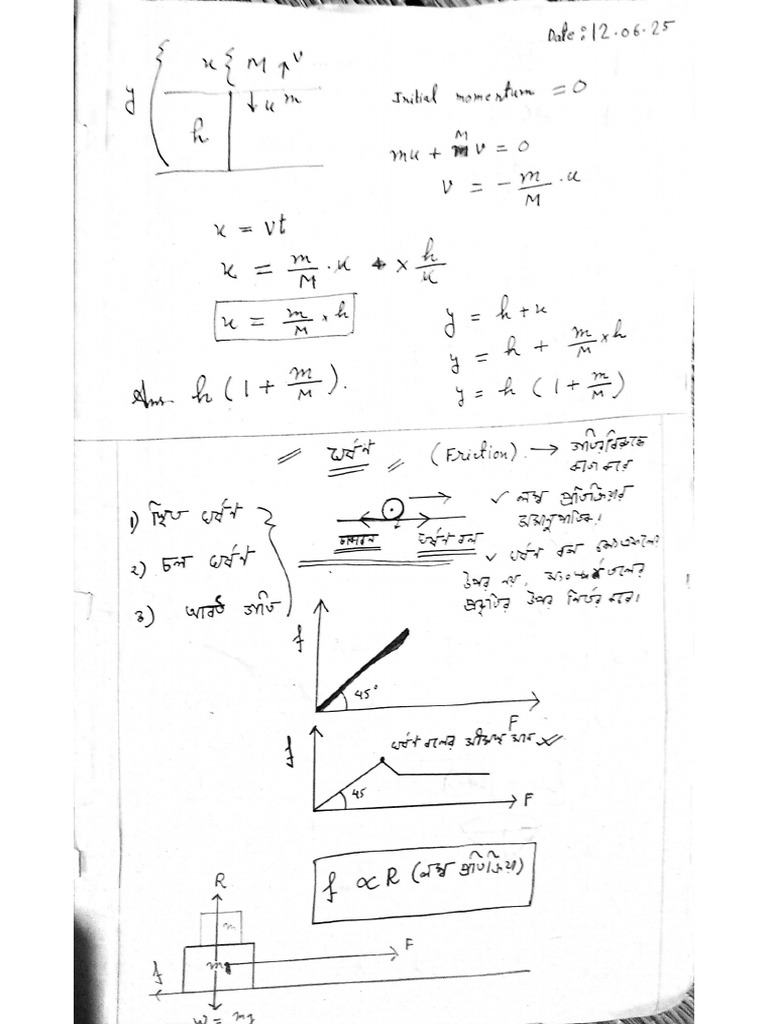 Date: 12.06.25
x { M ↑ v
y
↓ u m
h
Initial momentum = 0
mu + M v = 0
v = - m/M . u
x = vt
x = m/M . u × h/u
x = m/M × h
y = h + x
y = h + m/M × h
y = h (1 + m/M)
Ans. h (1 + m/M).
ঘর্ষণ (Friction). → গতির বিরুদ্ধে
কাজ করে
১) স্থিত ঘর্ষণ
২) চল ঘর্ষণ
৩) আবর্ত গতি
ঘর্ষণ বল
✓ লম্ব প্রতিক্রিয়ার
সমানুপাতিক।
✓ ঘর্ষণ বল
উপর নয়,
প্রকৃতির উপর নির্ভর করে।
f
45°
F
f
ঘর্ষণ বলের মান
45
F
f ∝ R (লম্ব প্রতিক্রিয়া)
R
m
F
m
f
W = mg